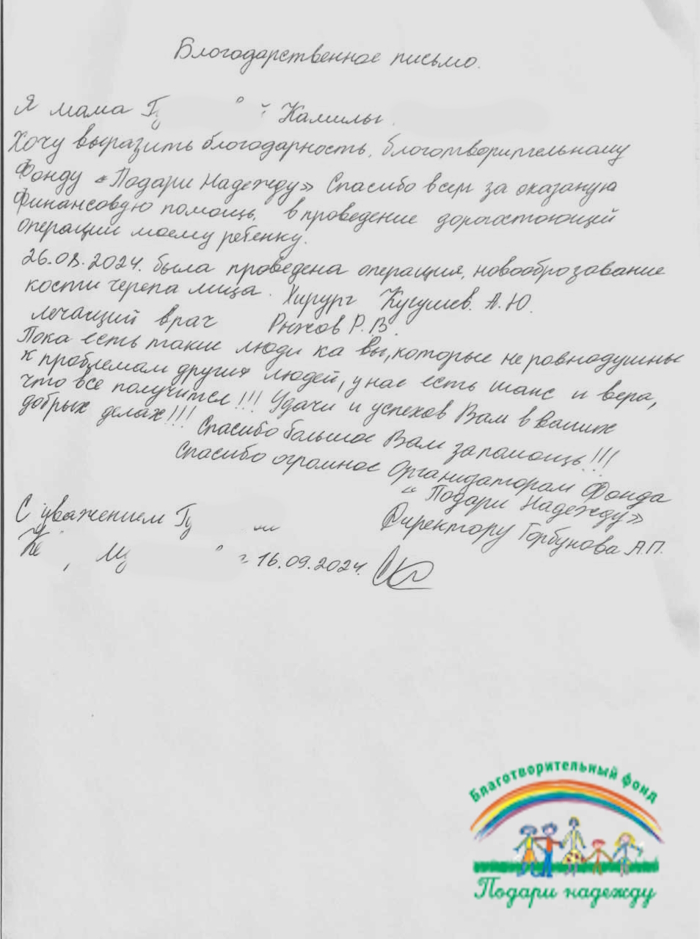 Благодарственное письмо.
Я мама Гу Камилы.
Хочу выразить благодарность, благотворительному
Фонду «Подари Надежду» Спасибо всем за оказаную
Финансовую помощь, в проведение дорогостоющей
операций моему ребенку.
26.08.2024. была проведена операция, новооброзавание
кости черепа лица. Хирург Кугушев. А.Ю.
лечащий врач Рыжов Р.В.
Пока есть такие люди ка вы, которые не ровнодушны
к проблемам других людей, у нас есть шанс и вера,
что все получится!!! Удачи и успехов Вам в Ваших
добрых делах!!! Спасибо большое Вам за помощь!!!
Спасибо огромное Организаторам Фонда
"Подари Надежду»
С уважением Гу Директору Горбунова А.П.
16.09.2024.
Благотворительный фонд
Подари надежду